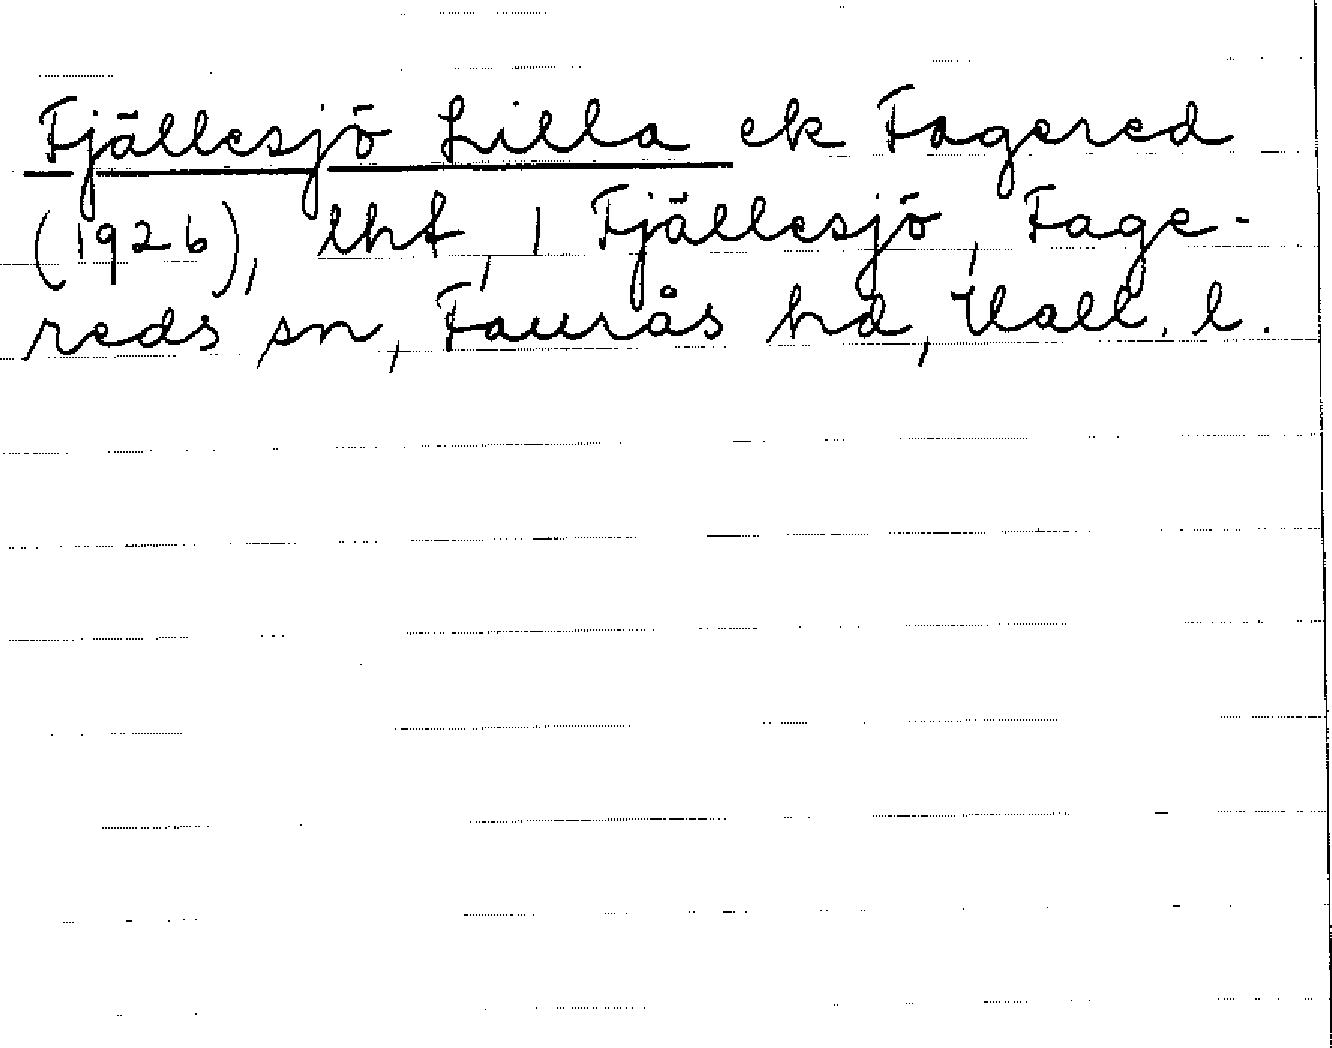 Fjällesjö Lilla ek Fagered
(1926), lht, 1 Fjällesjö, Fage-
reds sn, Faurås hd, Hall. l.